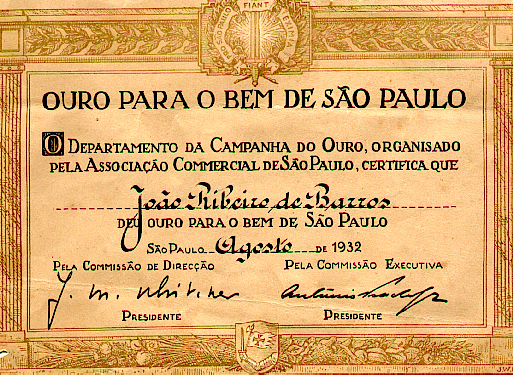 FIANT EXIMIA
OURO PARA O BEM DE SÃO PAULO
O DEPARTAMENTO DA CAMPANHA DO OURO, ORGANISADO
PELA ASSOCIAÇÃO COMMERCIAL DE SÃO PAULO, CERTIFICA QUE
João Ribeiro de Barros
DEU OURO PARA O BEM DE SÃO PAULO
SÃO PAULO Agosto DE 1932
PELA COMMISSÃO DE DIRECÇÃO PELA COMMISSÃO EXECUTIVA
PRESIDENTE PRESIDENTE